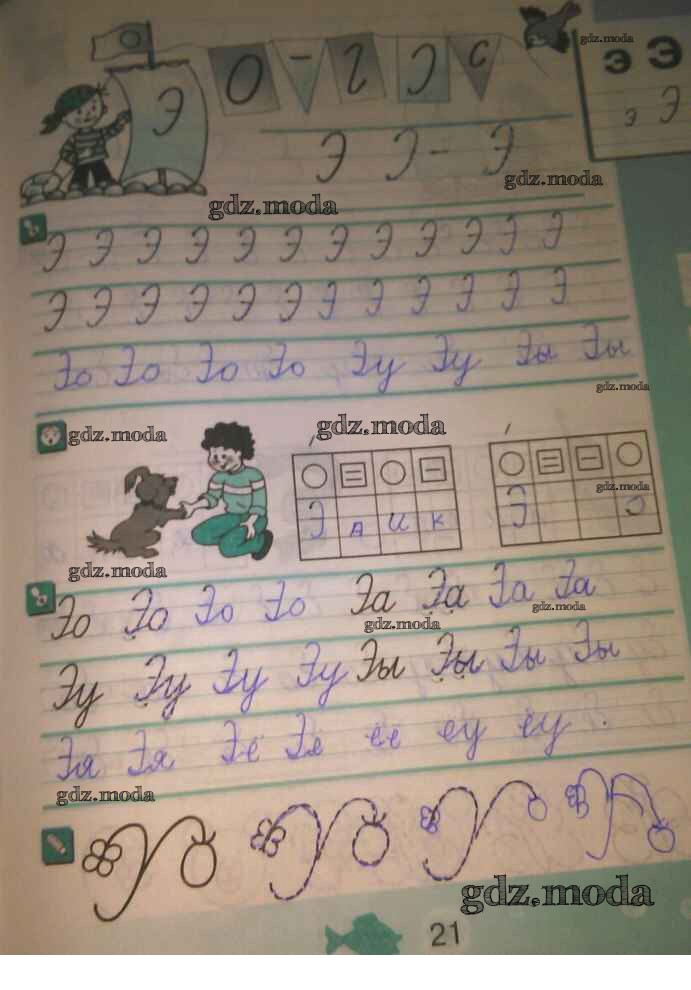 gdz.moda
Э О - г Э с Э Э
Э Э - Э э Э
gdz.moda
gdz.moda
Э Э Э Э Э Э Э Э Э Э Э Э
Э Э Э Э Э Э Э Э Э Э Э Э
Эо Эо Эо Эо Эу Эу Эы Эы
gdz.moda
gdz.moda gdz.moda
gdz.moda
Э а и к Э э
gdz.moda
Эо Эо Эо Эо Эа Эа Эа Эа
gdz.moda gdz.moda
Эу Эу Эу Эу Эы Эы Эы Эы
Эя Эя Эе Эе ее еу еу.
gdz.moda
gdz.moda
21